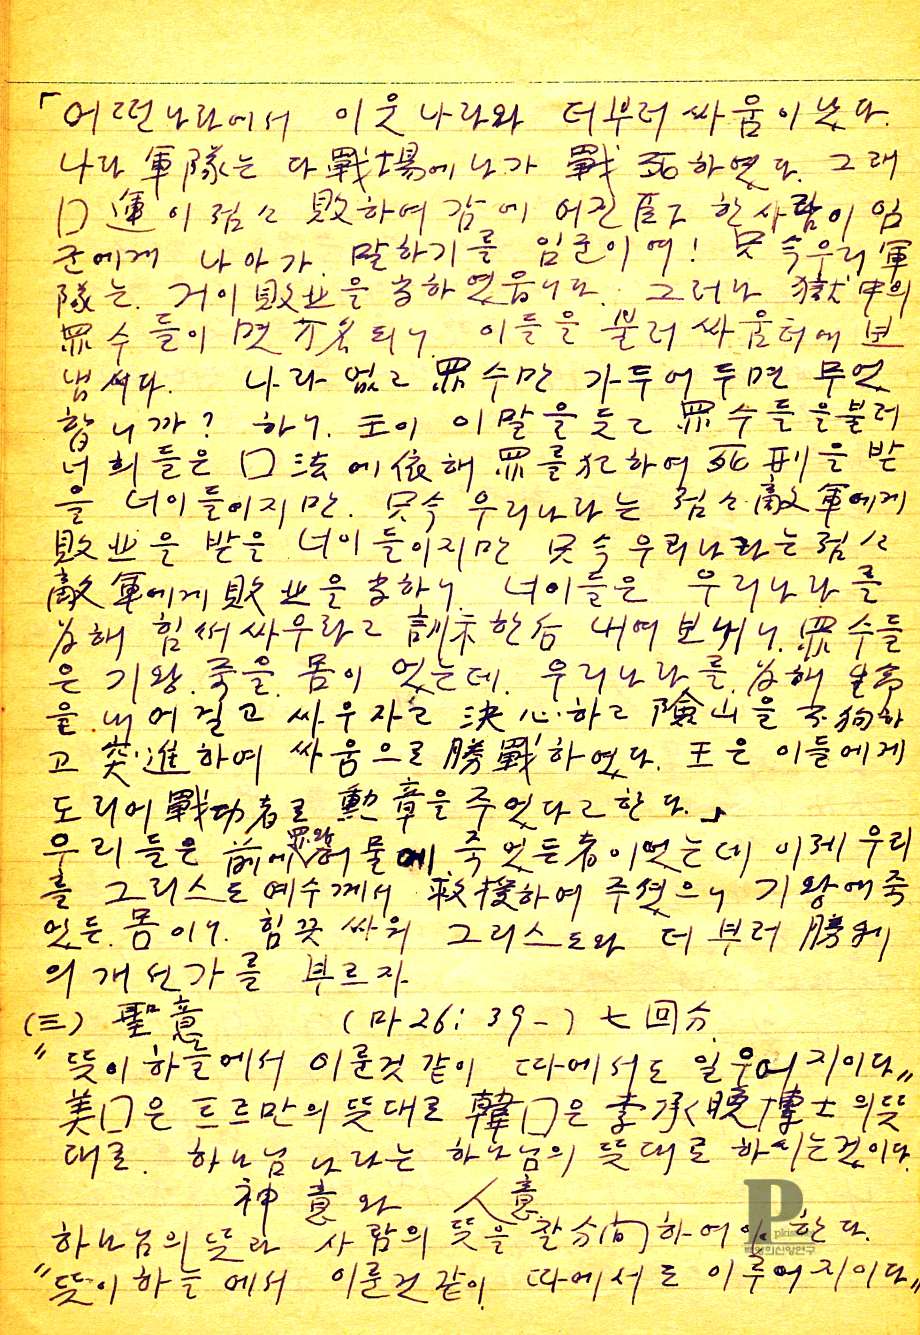 「어떤나라에서 이웃나라와 더부러 싸움이 났다.
나라 軍隊는 다 戰場에 나가 戰死하였다. 그래
口運이 점점 敗하여 감에 어진 臣下 한사람이 임
군에게 나아가. 말하기를 임군이여! 只今우리軍
隊는. 거이 敗北을 當하였읍니다. 그러나 獄中의
罪수들이 몇 万名되니. 이들을 불러 싸움터에 보
냅시다. 나라 없고 罪수만 가두어두면 무엇
합니까? 하니. 王이 이말을 듣고 罪수들을불러
너희들은 口法에依해 罪를犯하여 死刑을 받
을 너이들이지만. 只今 우리나라는 점점 敵軍에게
敗北을 받을 너이들이지만 只今 우리나라는점점
敵軍에게敗北을當하니 너이들은 우리나라를
为해 힘써싸우라고 訓示한后 내여보내니. 罪수들
은 기왕. 죽을. 몸이 었는데. 우리나라를. 为해 生命
을 내여걸고 싸우자고 決心하고 險山을 不拘하
고 突進하여 싸움으로 勝戰하였다. 王은 이들에게
도리여戰功者로 勳章을주었다고한다.」
우리들은 前에 罪와 허물에 죽었든者이었는데 이제 우리
를 그리스도예수께서 救援하여 주셨으니 기왕에죽
었든. 몸이니. 힘껏 싸워 그리스도와 더부러 勝利
의개선가를 부르자
(三) 聖意 (마26:39-) 七回分
"뜻이하늘에서 이룬것같이 따에서도 일우어지이다"
美口은 트르만의뜻대로 韓口은 李承晩博士의뜻
대로. 하나님나라는 하나님의 뜻대로 하시는것이다.
神意와 人意
하나님의뜻과 사람의 뜻을 잘分间하여야 한다.
"뜻이하늘에서 이룬것같이 따에서도 이루어지이다"
P